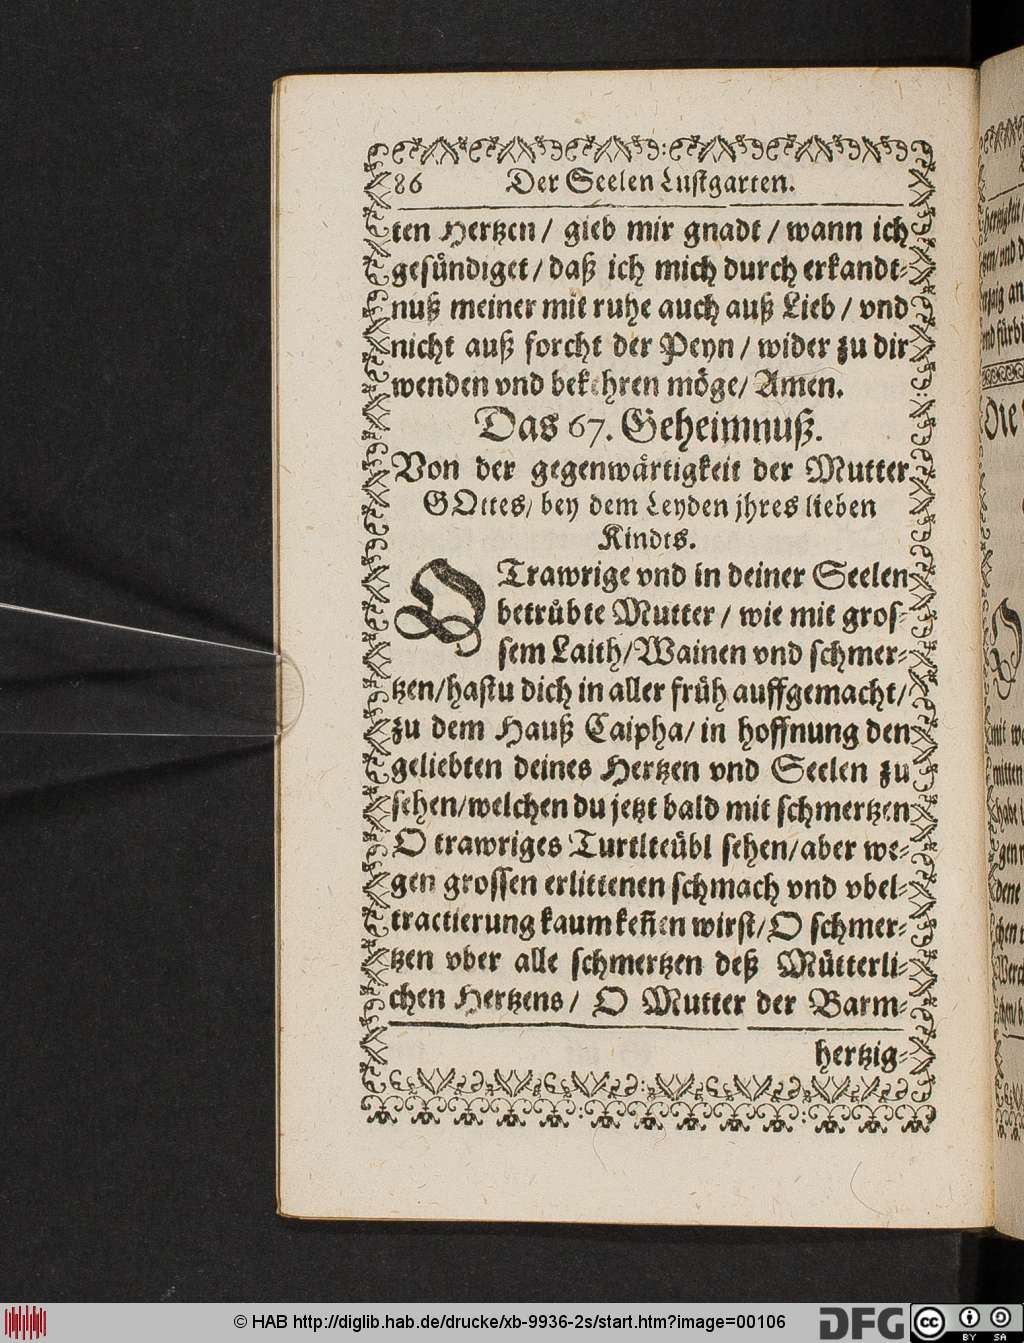 86 Der Seelen Lustgarten.
ten Hertzen / gieb mir gnadt / wann ich
gesündiget / daß ich mich durch erkandt-
nuß meiner mit ruhe auch auß Lieb / vnd
nicht auß forcht der Peyn / wider zu dir
wenden vnd bekehren möge / Amen.
Das 67. Geheimnuß.
Von der gegenwärtigkeit der Mutter
GOttes / bey dem Leyden jhres lieben
Kindts.
O Trawrige vnd in deiner Seelen
betrübte Mutter / wie mit gros-
sem Laith / Wainen vnd schmer-
tzen / hastu dich in aller früh auffgemacht /
zu dem Hauß Caipha / in hoffnung den
geliebten deines Hertzen vnd Seelen zu
sehen / welchen du jetzt bald mit schmertzen
O trawriges Turtlteübl sehen / aber we-
gen grossen erlittenen schmach vnd vbel-
tractierung kaum keñen wirst / O schmer-
tzen vber alle schmertzen deß Mütterli-
chen Hertzens / O Mutter der Barm-
hertzig-
© HAB http://diglib.hab.de/drucke/xb-9936-2s/start.htm?image=00106
DFG
cc BY SA